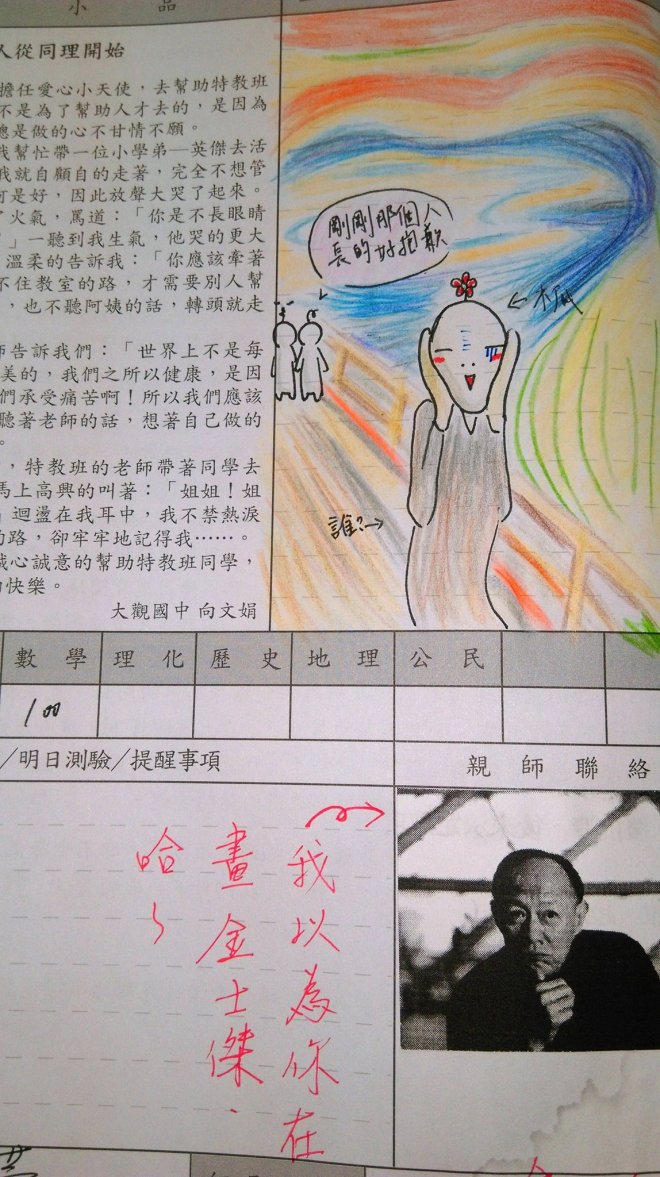 小 品
人從同理開始
擔任愛心小天使，去幫助特教班
不是為了幫助人才去的，是因為
總是做的心不甘情不願。
我幫忙帶一位小學弟—英傑去活
我就自顧自的走著，完全不想管
可是好，因此放聲大哭了起來。
了火氣，罵道：「你是不長眼睛
」一聽到我生氣，他哭的更大
溫柔的告訴我：「你應該牽著
不住教室的路，才需要別人幫
，也不聽阿姨的話，轉頭就走
師告訴我們：「世界上不是每
美的，我們之所以健康，是因
們承受痛苦啊！所以我們應該
聽著老師的話，想著自己做的
。
，特教班的老師帶著同學去
馬上高興的叫著：「姐姐！姐
」迴盪在我耳中，我不禁熱淚
的路，卻牢牢地記得我……。
誠心誠意的幫助特教班同學，
的快樂。
大觀國中 向文娟
剛剛那個人
長的好抱歉
誰?→
數學 理化 歷史 地理 公民
100
／明日測驗／提醒事項
親師聯絡
我以為你在
畫金士傑.
哈~